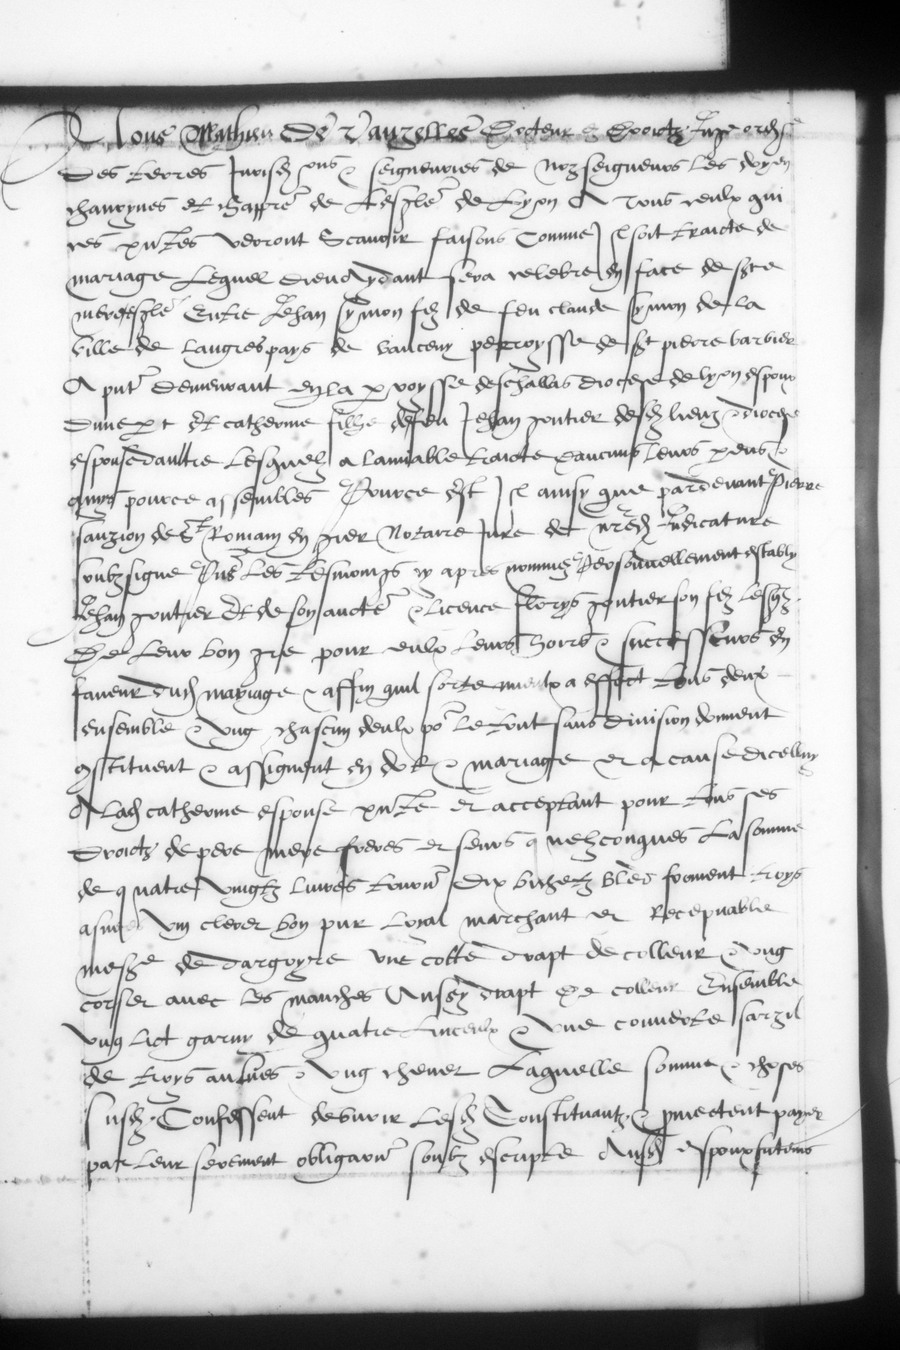 Nous Mathieu De Vauzelles docteur es droictz Juge ord.re
des terres Jurisd.ons & seigneuries de noz seigneurs les doyen
chanoynes et chappre de lesglé de Lyon A tous ceulx qui
ces pntes verront Scavoir faisons Comme Il soit traicte de
mariage Lequel dieu Aydant sera celebre en face de scte
mere esglé Entre Jehan symon filz de feu claude symon de la
ville de Langres pays de perroysse de sct pierre barbier
A pnt demeurant en la parroysse deschallas diocese de lyon espoux
dune pt Et catherine fillie de feu Jehan pontier desd lieu & diocese
espouse daultre Lesquelz a lamiable traicte daucuns leurs parens &
amys pource assembles Pource est Il ainsy que pardevant Pierre
de St Romain en gier Notaire Jure de nred Judicature
soubzsigne Pns Les tesmoings cy apres nommez Personnellement estably
Jehan pontier Et de son aucté & licence florys pontier son filz Lesqlz
De Leur bon gre pour eulx Leurs hoirs & successeurs En
faveur dud mariage & affin quil sorte mieulx a effect tous deux
ensemble & ung chascun deulx po.r le tout sans division donnent
constituent & assignent en dot & mariage et a cause dicelluy
A lad catherine espouse pnte et acceptant pour tous ses
Droictz de pere mere freres et seurs quelzconques La somme
de quatre vingtz livres tournois dix bichetz bled froment troys
asnees vin cleret bon pur Loyal marchant et Recepvable
mesure de dargoyre une cotte drapt de colleur & ung
corset avec les manches Aussy drapt De colleur Ensemble
ung lict garny de quatre linceulx & une couverte sarzil
de troys aulnes & ung chevet Laquelle somme & choses
susd Confessent debvoir Lesd Constituantz & pmectent payer
par leur serement obligation soubz escripte Ausd espoux futeurs